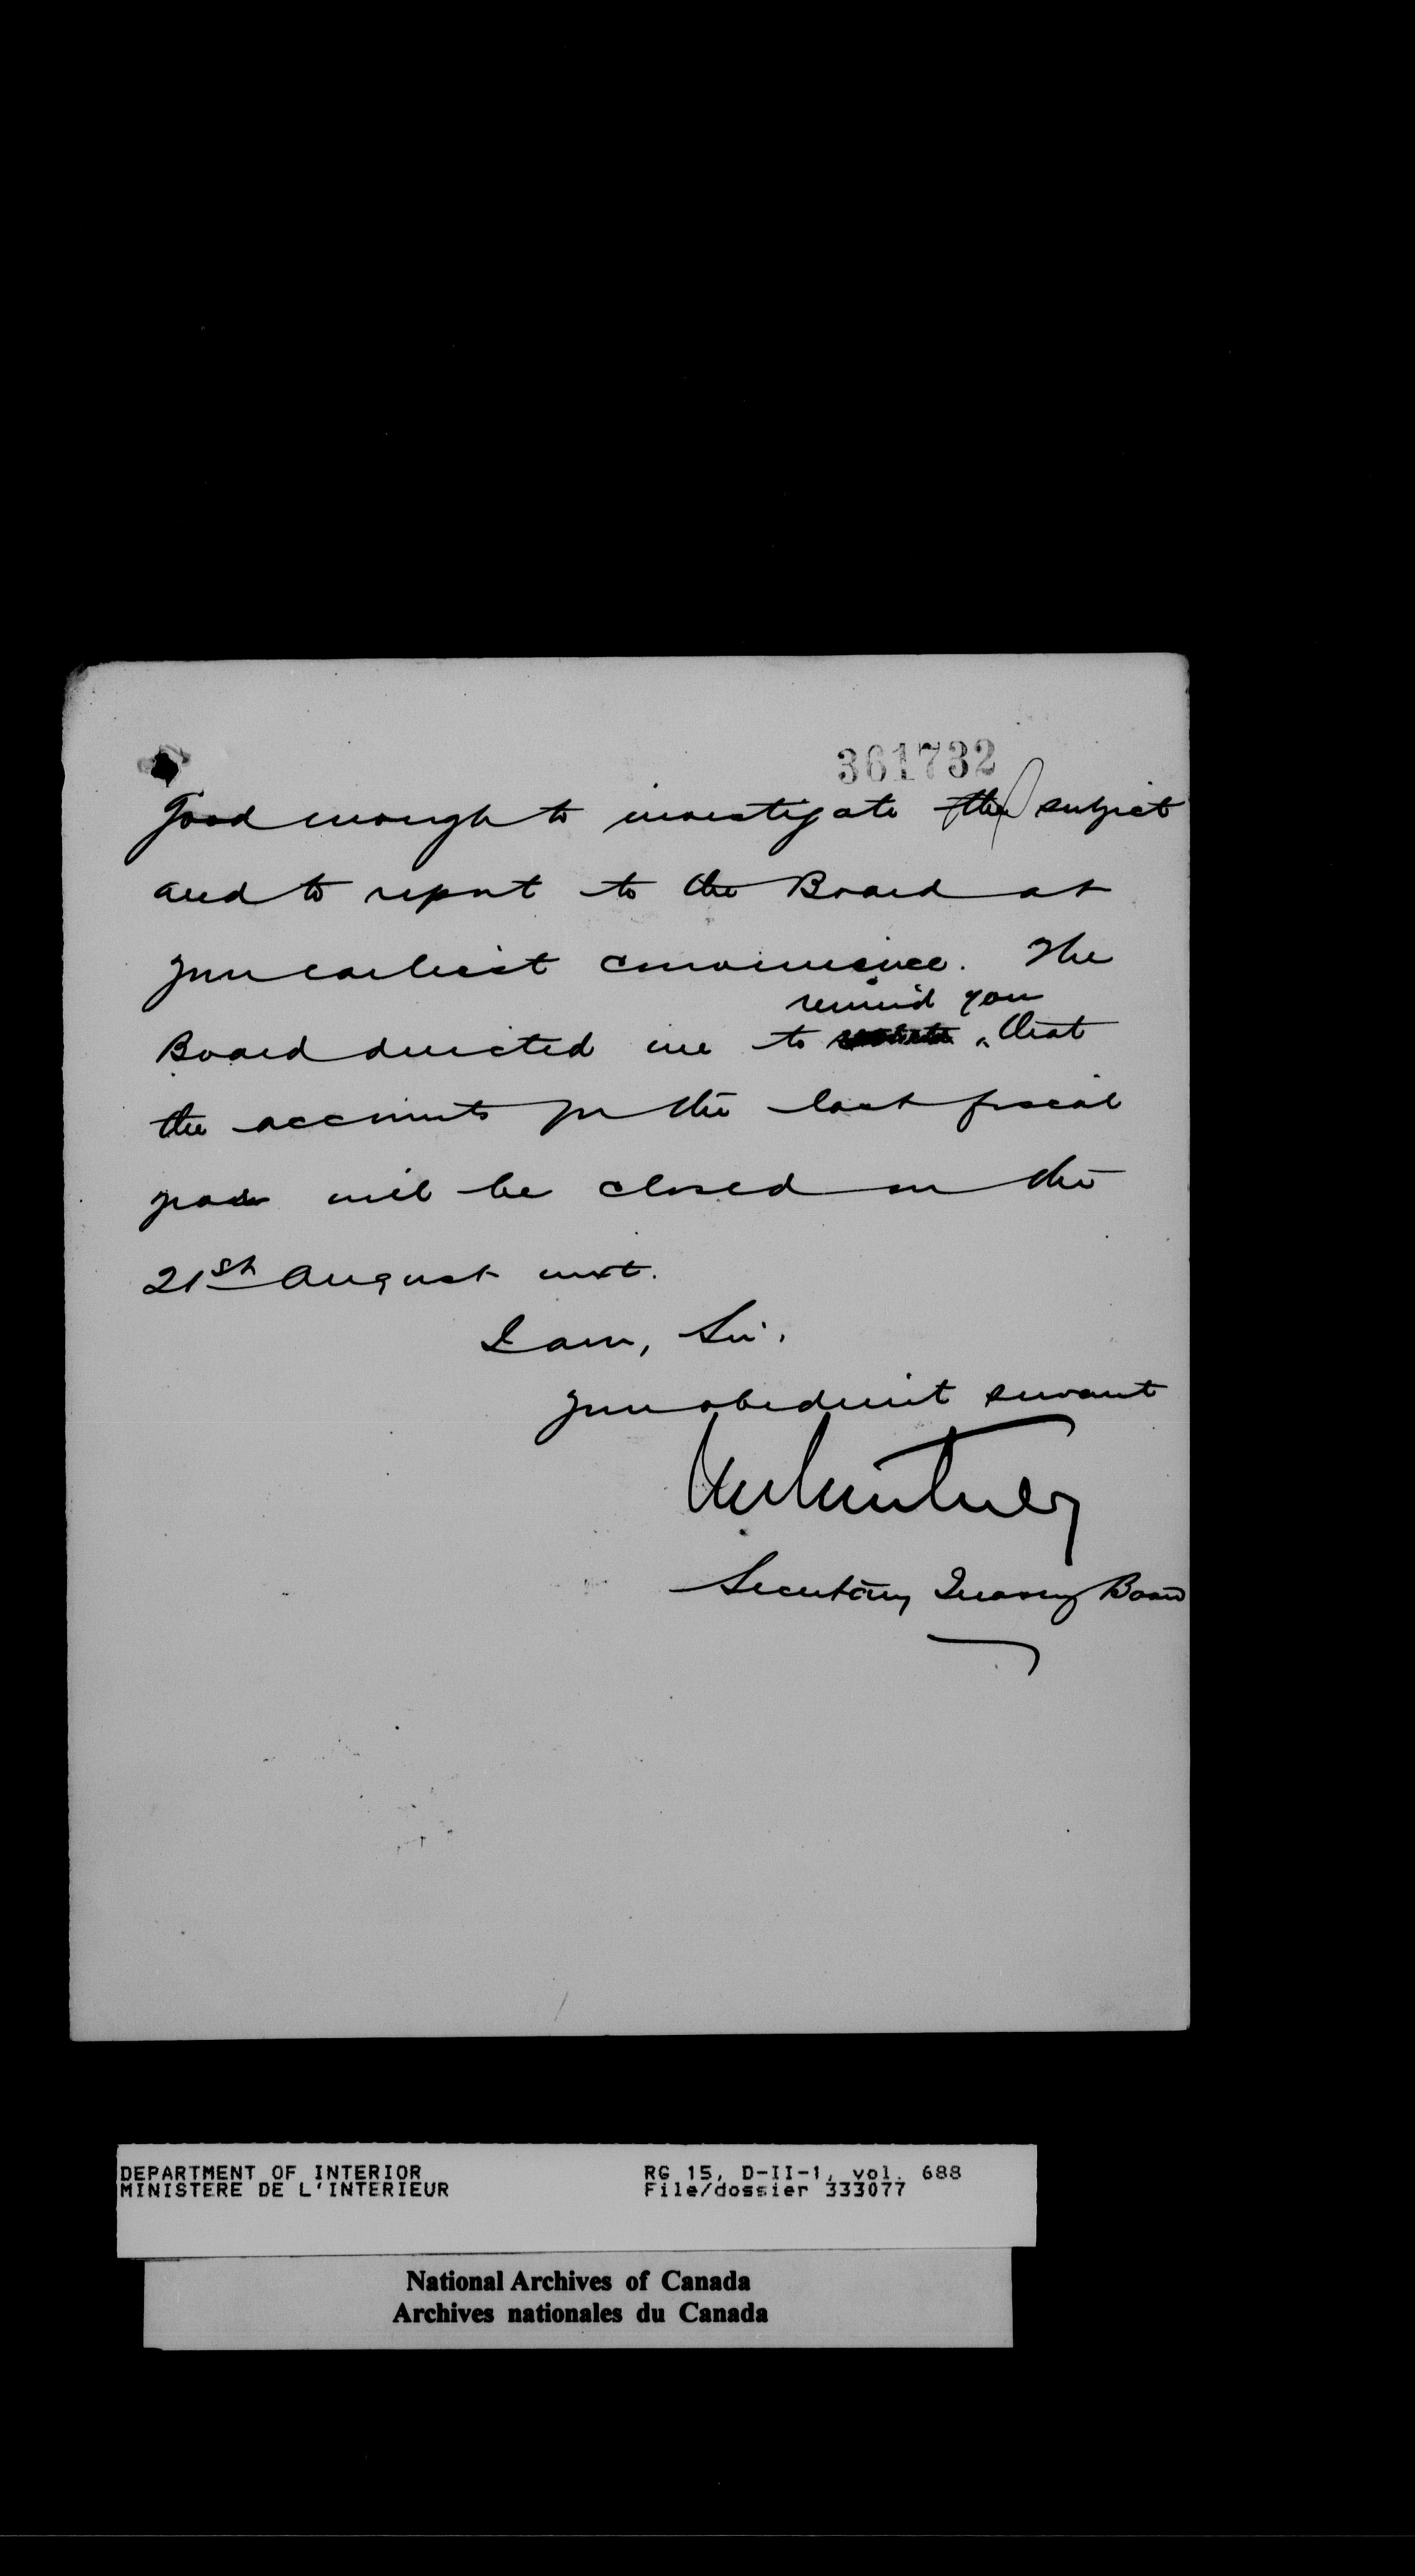 361732
good enough to investigate the subject
and to report to the Board at
your earliest convenience. The
remind you
Board directed me to that
the accounts for the last fiscal
year will be closed on the
21st August next.
I am, Sir,
your obedient servant
Secretary Treasury Board
DEPARTMENT OF INTERIOR
MINISTERE DE L'INTERIEUR
RG 15, D-II-1, vol. 688
File/dossier 333077
National Archives of Canada
Archives nationales du Canada